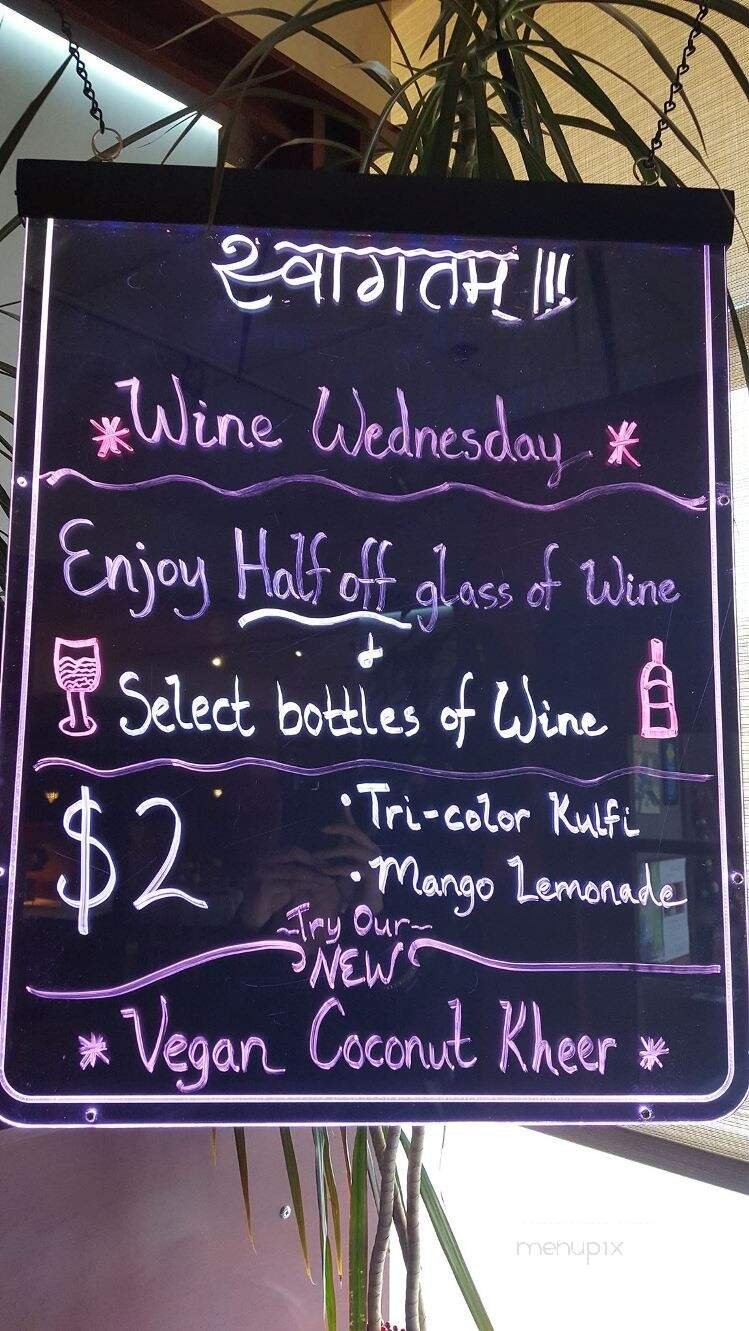 स्वागतम् !!!
Wine Wednesday
Enjoy Half off glass of Wine
&
Select bottles of Wine
$2
• Tri-color Kulfi
• Mango Lemonade
~Try Our~
NEW
Vegan Coconut Kheer
menupix